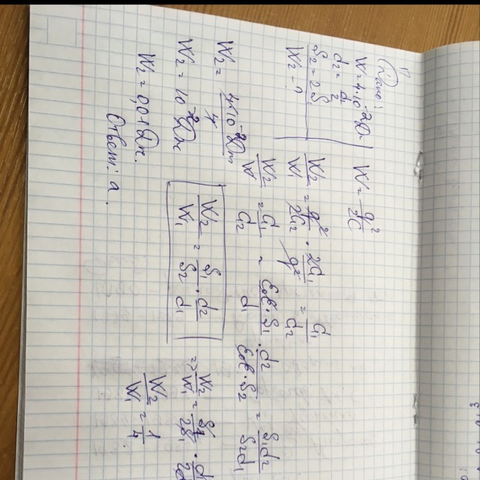 Дано:
W = 4·10⁻²Дж
d₂ = d₁/2
S₂ = 2S
W₂ - ?
W = q²/2C
W₂/W = q²/2C₂ · 2C₁/q² = C₁/C₂
W₂/W = C₁/C₂ = ε₀ε·S₁/d₁ · d₂/ε₀ε·S₂ = S₁d₂/S₂d₁
W₂/W₁ = S₁/S₂ · d₂/d₁ => W₂/W₁ = S₁/2S₁ ·
W₂/W₁ = 1/4.
W₂ = 4·10⁻²Дж/4
W₂ = 10⁻²Дж
W₂ = 0,01Дж.
Ответ: а.